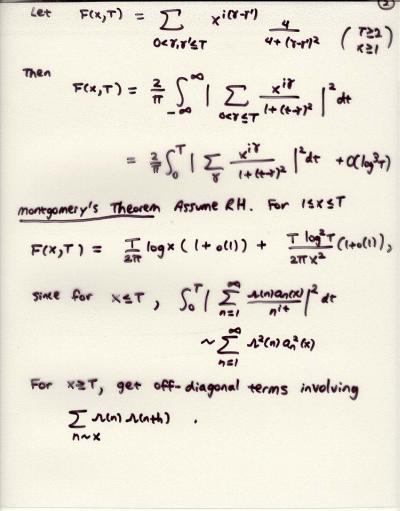 ②
Let F(x,T) = ∑_{0<γ,γ'≤T} x^{i(γ-γ')} 4/(4+(γ-γ')²) (T≥2 x≥1)
Then
F(x,T) = 2/π ∫_{-∞}^{∞} | ∑_{0<γ≤T} x^{iγ}/(1+(t-γ)²) |² dt
= 2/π ∫_0^T | ∑_γ x^{iγ}/(1+(t-γ)²) |² dt + O(log³T)
Montgomery's Theorem Assume RH. For 1≤x≤T
F(x,T) = T/2π log x (1+o(1)) + T log²T/2πx² (1+o(1)),
since for x≤T, ∫_0^T | ∑_{n=1}^∞ Λ(n)a_n(x)/n^{it} |² dt
~ ∑_{n=1}^∞ Λ²(n) a_n²(x)
For x≥T, get off-diagonal terms involving
∑_{n~x} Λ(n) Λ(n+h) .